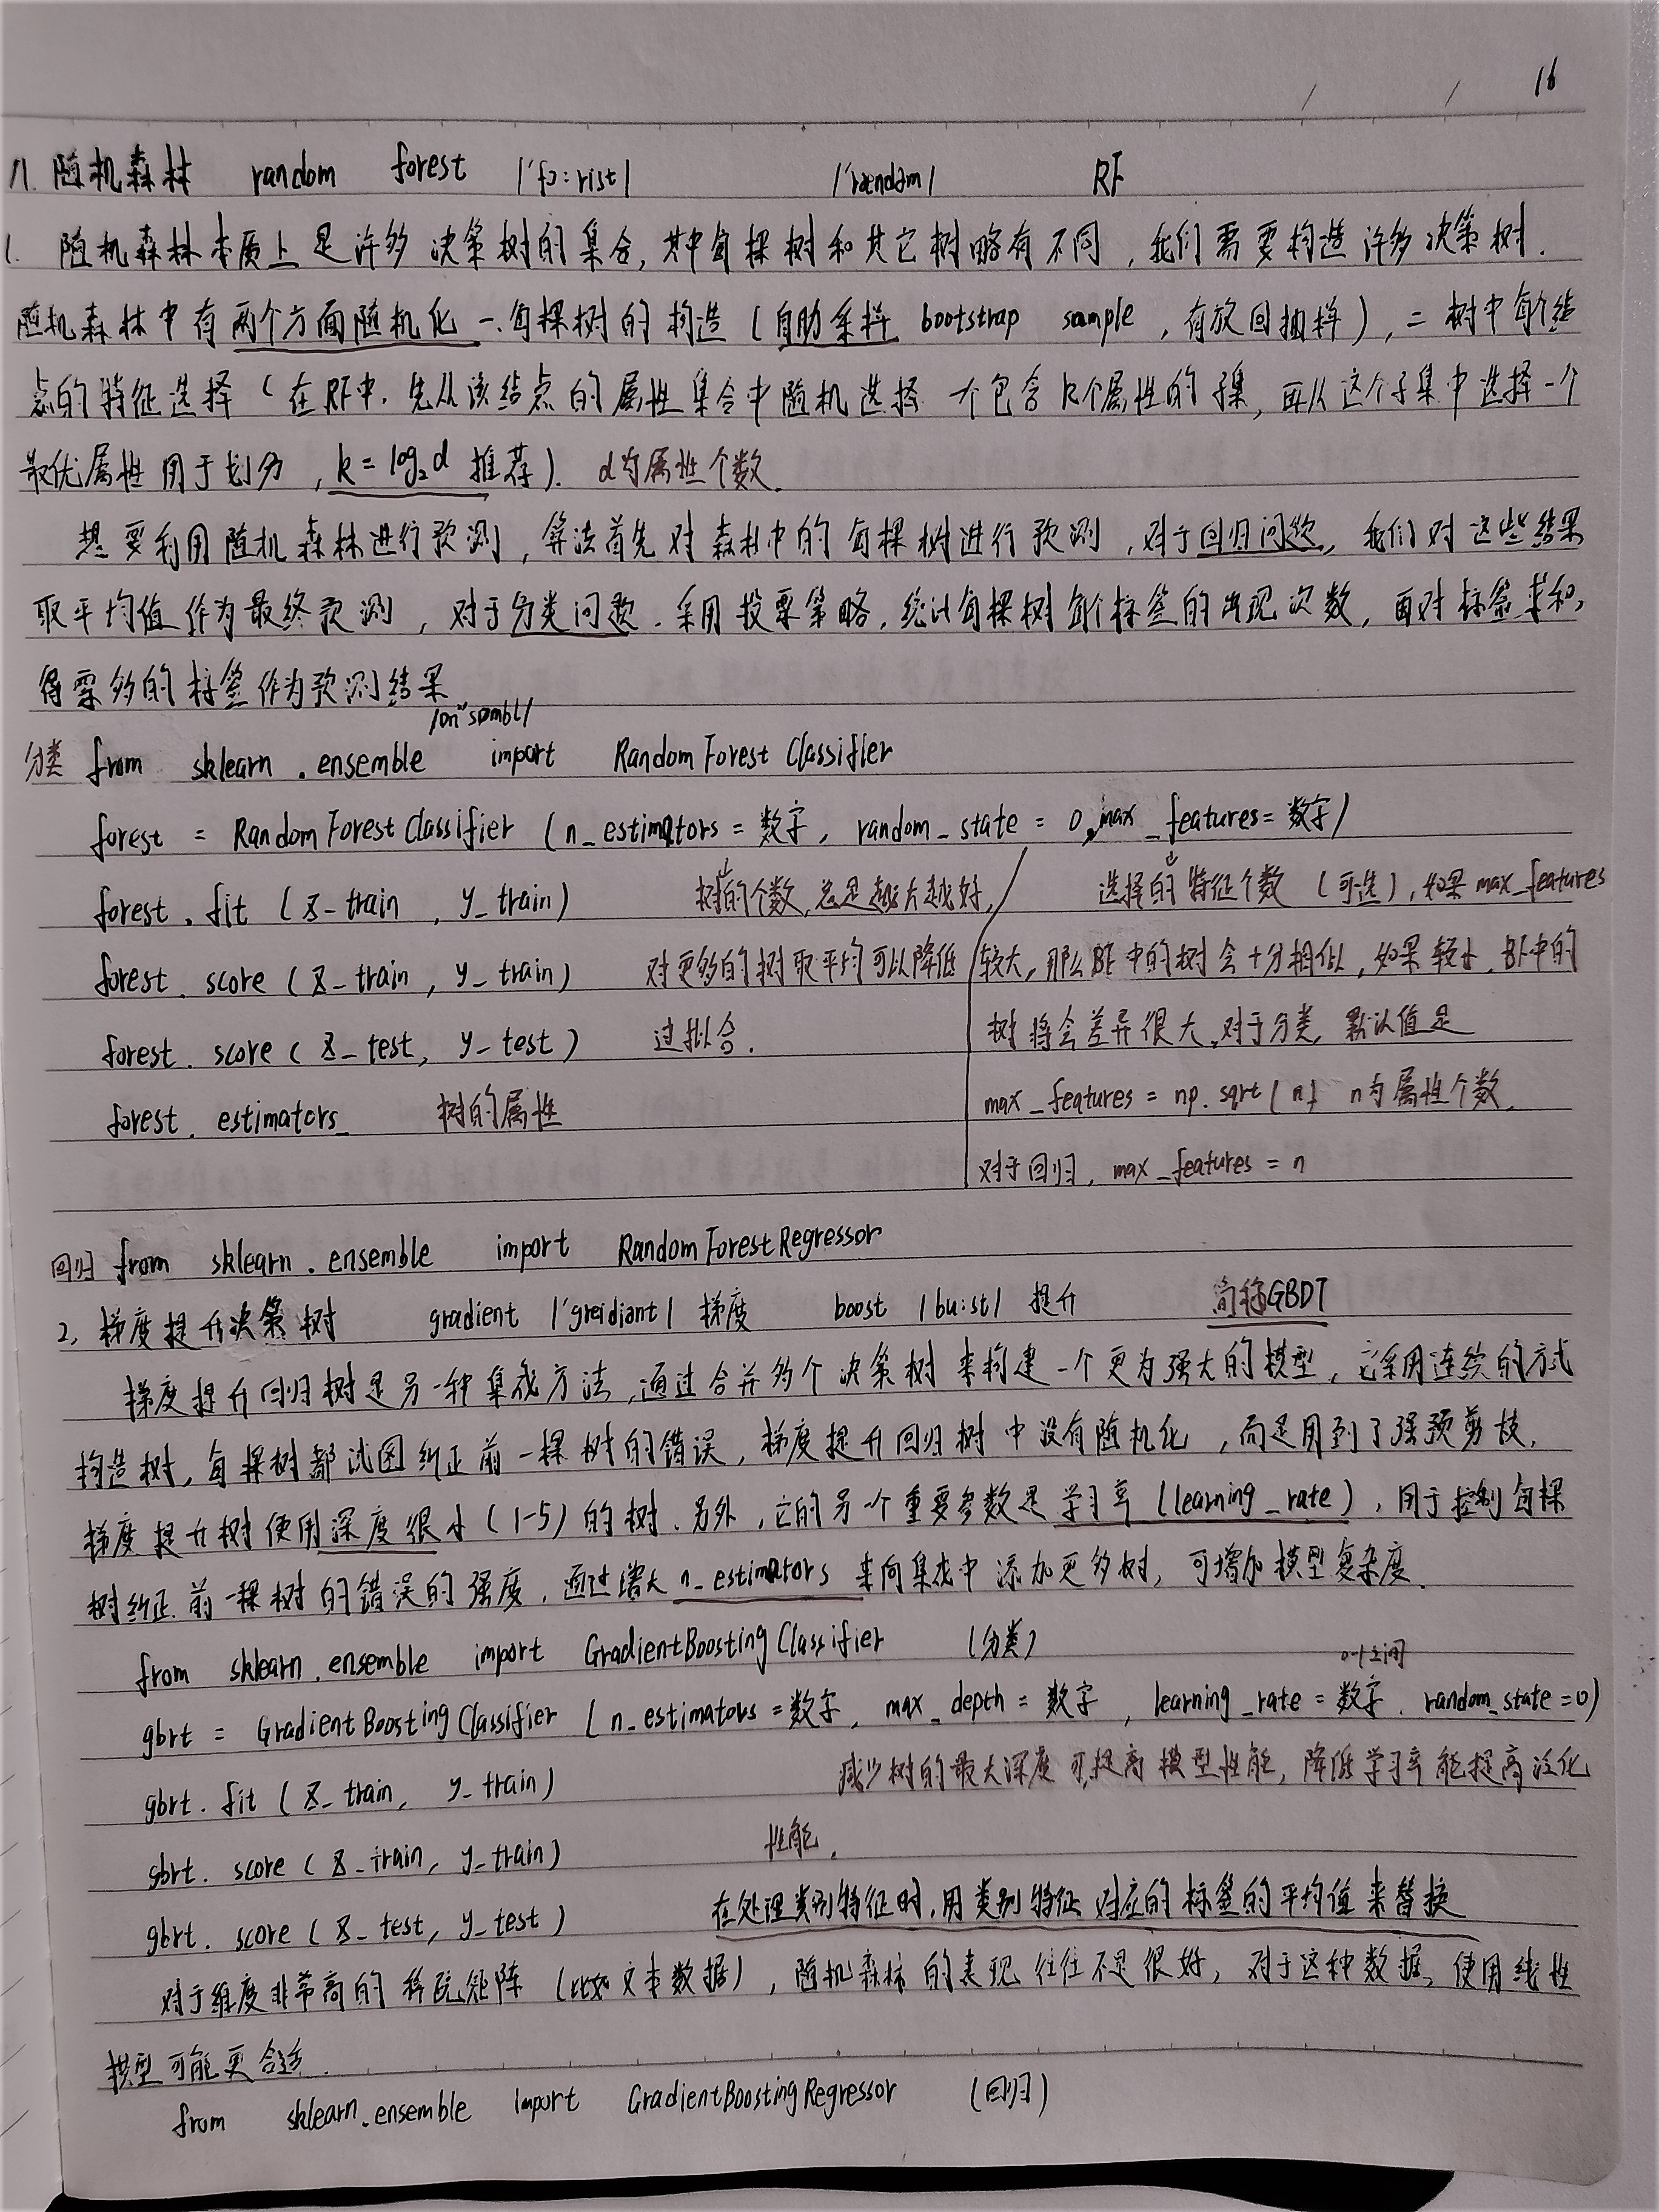 16
八. 随机森林 random forest /'fɔ:rist/ /'rændəm/ RF
1. 随机森林本质上是许多决策树的集合, 其中每棵树和其它树略有不同, 我们需要构造许多决策树.
随机森林中有两个方面随机化 一.每棵树的构造 (自助采样 bootstrap sample, 有放回抽样), 二 树中每个结
点的特征选择 (在RF中, 先从该结点的属性集合中随机选择一个包含k个属性的子集, 再从这个子集中选择一个
最优属性用于划分, k = log₂d 推荐). d为属性个数.
想要利用随机森林进行预测, 算法首先对森林中的每棵树进行预测, 对于回归问题, 我们对这些结果
取平均值作为最终预测, 对于分类问题. 采用投票策略, 统计每棵树每个标签的出现次数, 再对标签求和,
得票多的标签作为预测结果
/on'sombl/
分类 from sklearn.ensemble import RandomForestClassifier
forest = RandomForestClassifier (n_estimators = 数字, random_state = 0, max_features = 数字)
forest.fit (X_train, y_train) 树的个数, 总是越大越好, 选择的特征个数 (可选), 如果 max_features
forest.score (X_train, y_train) 对更多的树取平均可以降低 较大, 那么RF中的树会十分相似, 如果较小, RF中的
forest.score (X_test, y_test) 过拟合. 树将会差异很大, 对于分类, 默认值是
forest.estimators_ 树的属性 max_features = np.sqrt(n) n为属性个数.
对于回归, max_features = n
回归 from sklearn.ensemble import RandomForestRegressor
2. 梯度提升决策树 gradient /'greidiənt/ 梯度 boost /bu:st/ 提升 简称GBDT
梯度提升回归树是另一种集成方法, 通过合并多个决策树来构建一个更为强大的模型, 它采用连续的方式
构造树, 每棵树都试图纠正前一棵树的错误, 梯度提升回归树中没有随机化, 而是用到了强预剪枝,
梯度提升树使用深度很小 (1-5) 的树. 另外, 它的另一个重要参数是学习率 (learning_rate), 用于控制每棵
树纠正前一棵树的错误的强度, 通过增大 n_estimators 来向集成中添加更多树, 可增加模型复杂度.
from sklearn.ensemble import GradientBoostingClassifier (分类)
0-1之间
gbrt = GradientBoostingClassifier (n_estimators = 数字, max_depth = 数字, learning_rate = 数字, random_state = 0)
gbrt.fit (X_train, y_train) 减少树的最大深度可提高模型性能, 降低学习率能提高泛化
gbrt.score (X_train, y_train) 性能.
gbrt.score (X_test, y_test) 在处理类别特征时, 用类别特征对应的标签的平均值来替换
对于维度非常高的稀疏矩阵 (比如文本数据), 随机森林的表现往往不是很好, 对于这种数据, 使用线性
模型可能更合适.
from sklearn.ensemble import GradientBoostingRegressor (回归)